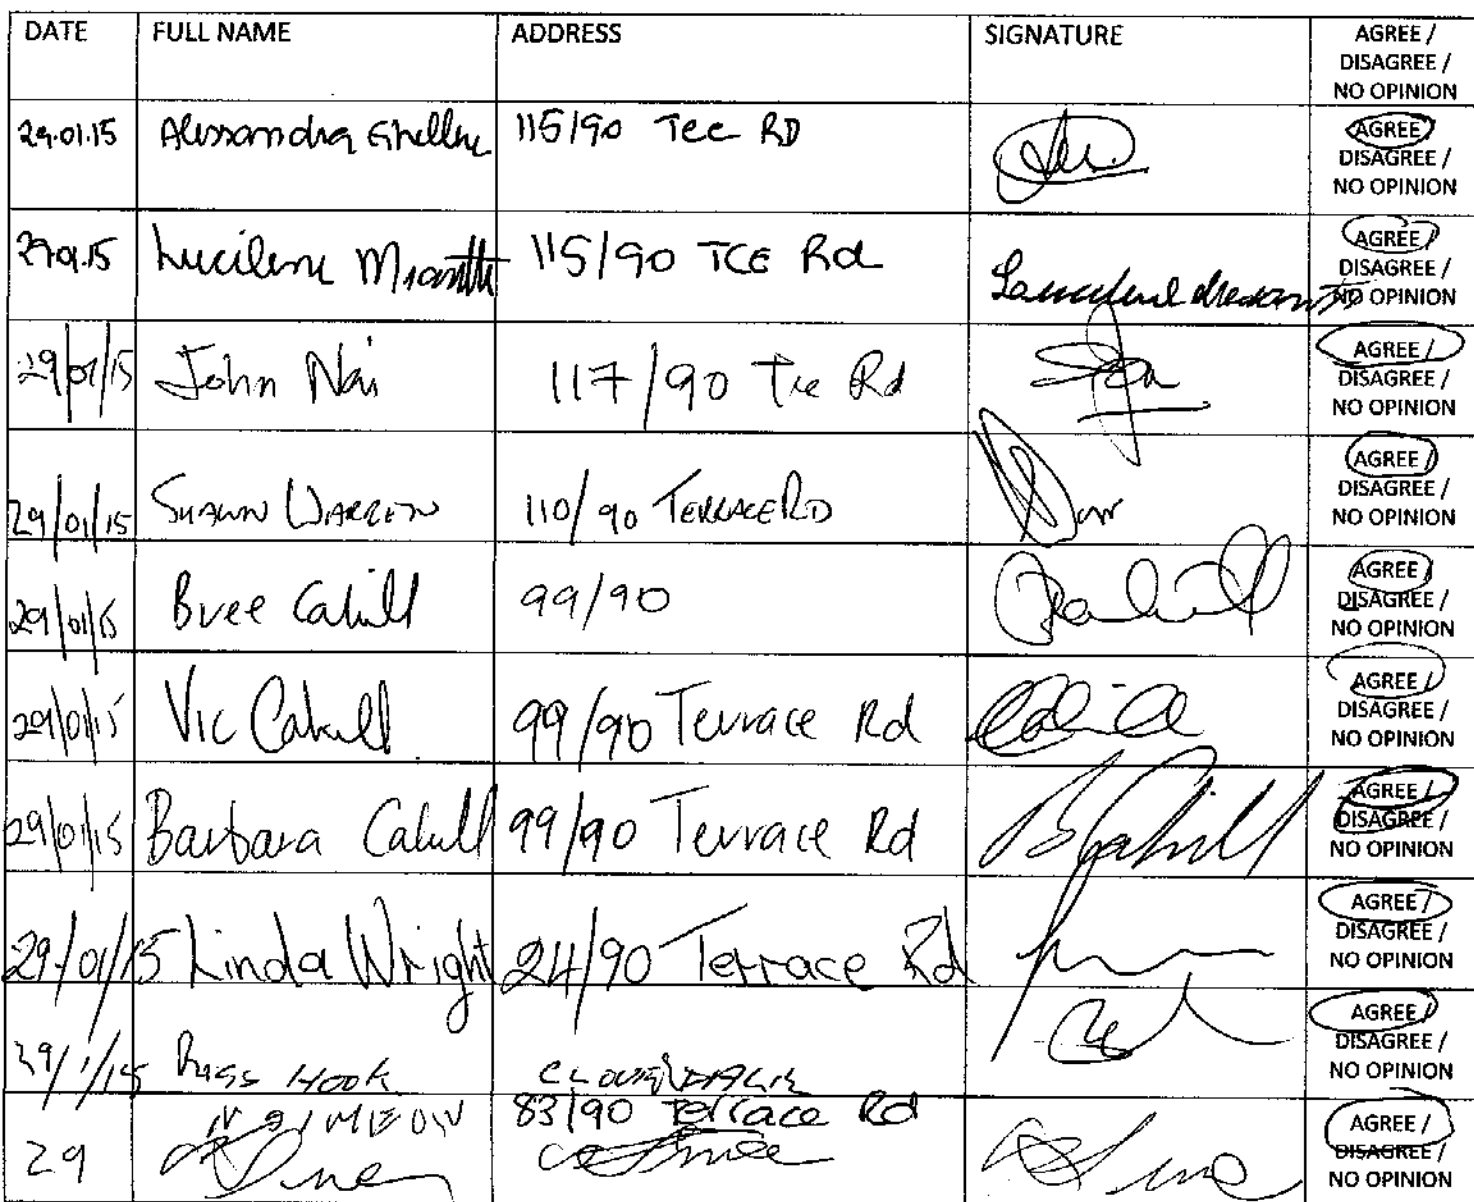 DATE FULL NAME ADDRESS SIGNATURE AGREE /
DISAGREE /
NO OPINION
29.01.15 Alessandra 115/90 Tce RD AGREE /
DISAGREE /
NO OPINION
29.01.15 115/90 TCE Rd AGREE /
DISAGREE /
NO OPINION
29/01/15 John 117/90 Tce Rd AGREE /
DISAGREE /
NO OPINION
29/01/15 SHAWN WARREN 110/90 TERRACE RD AGREE /
DISAGREE /
NO OPINION
29/01/15 Bree Cahill 99/90 AGREE /
DISAGREE /
NO OPINION
29/01/15 Vic Cahill 99/90 Terrace Rd AGREE /
DISAGREE /
NO OPINION
29/01/15 Barbara Cahill 99/90 Terrace Rd BCahill AGREE /
DISAGREE /
NO OPINION
29/01/15 Linda Wright 24/90 Terrace Rd AGREE /
DISAGREE /
NO OPINION
29/1/15 Russ HOOK CLOVERDALE AGREE /
DISAGREE /
NO OPINION
83/90 Terrace Rd
29 AGREE /
DISAGREE /
NO OPINION